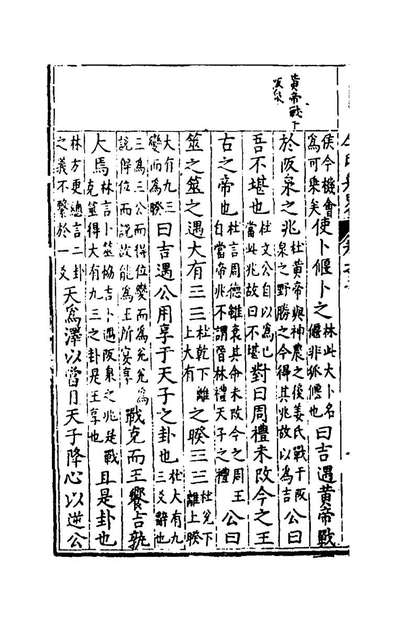 黄帝戰
侯今機會為可乗矣使卜偃卜之林此大卜名偃非郭偃也曰吉遇黄帝戰
於阪泉之兆杜黄帝與神農之後姜氏戰于阪泉之野勝之今得其兆故以為吉公曰
吾不堪也杜文公自以為也當此兆故曰不堪對曰周禮未改今之王
古之帝也杜言周德雖衰其命未改今之周王自當帝兆不謂晉林禮天子之禮公曰
筮之筮之遇大有三三杜乾下離上大有之睽三三杜兌下離上睽
大有九三變而為睽曰吉遇公用享于天子之卦也杜大有九三爻辭也
三為三公而得位變而為兌兌為說得位而說故能為王所宴享戰克而王饗吉孰
大焉林言卜筮協吉卜遇阪泉之兆是戰克筮得大有九三之卦是王享也且是卦也
林方更總言二卦之義不繫於一爻天為澤以當日天子降心以逆公